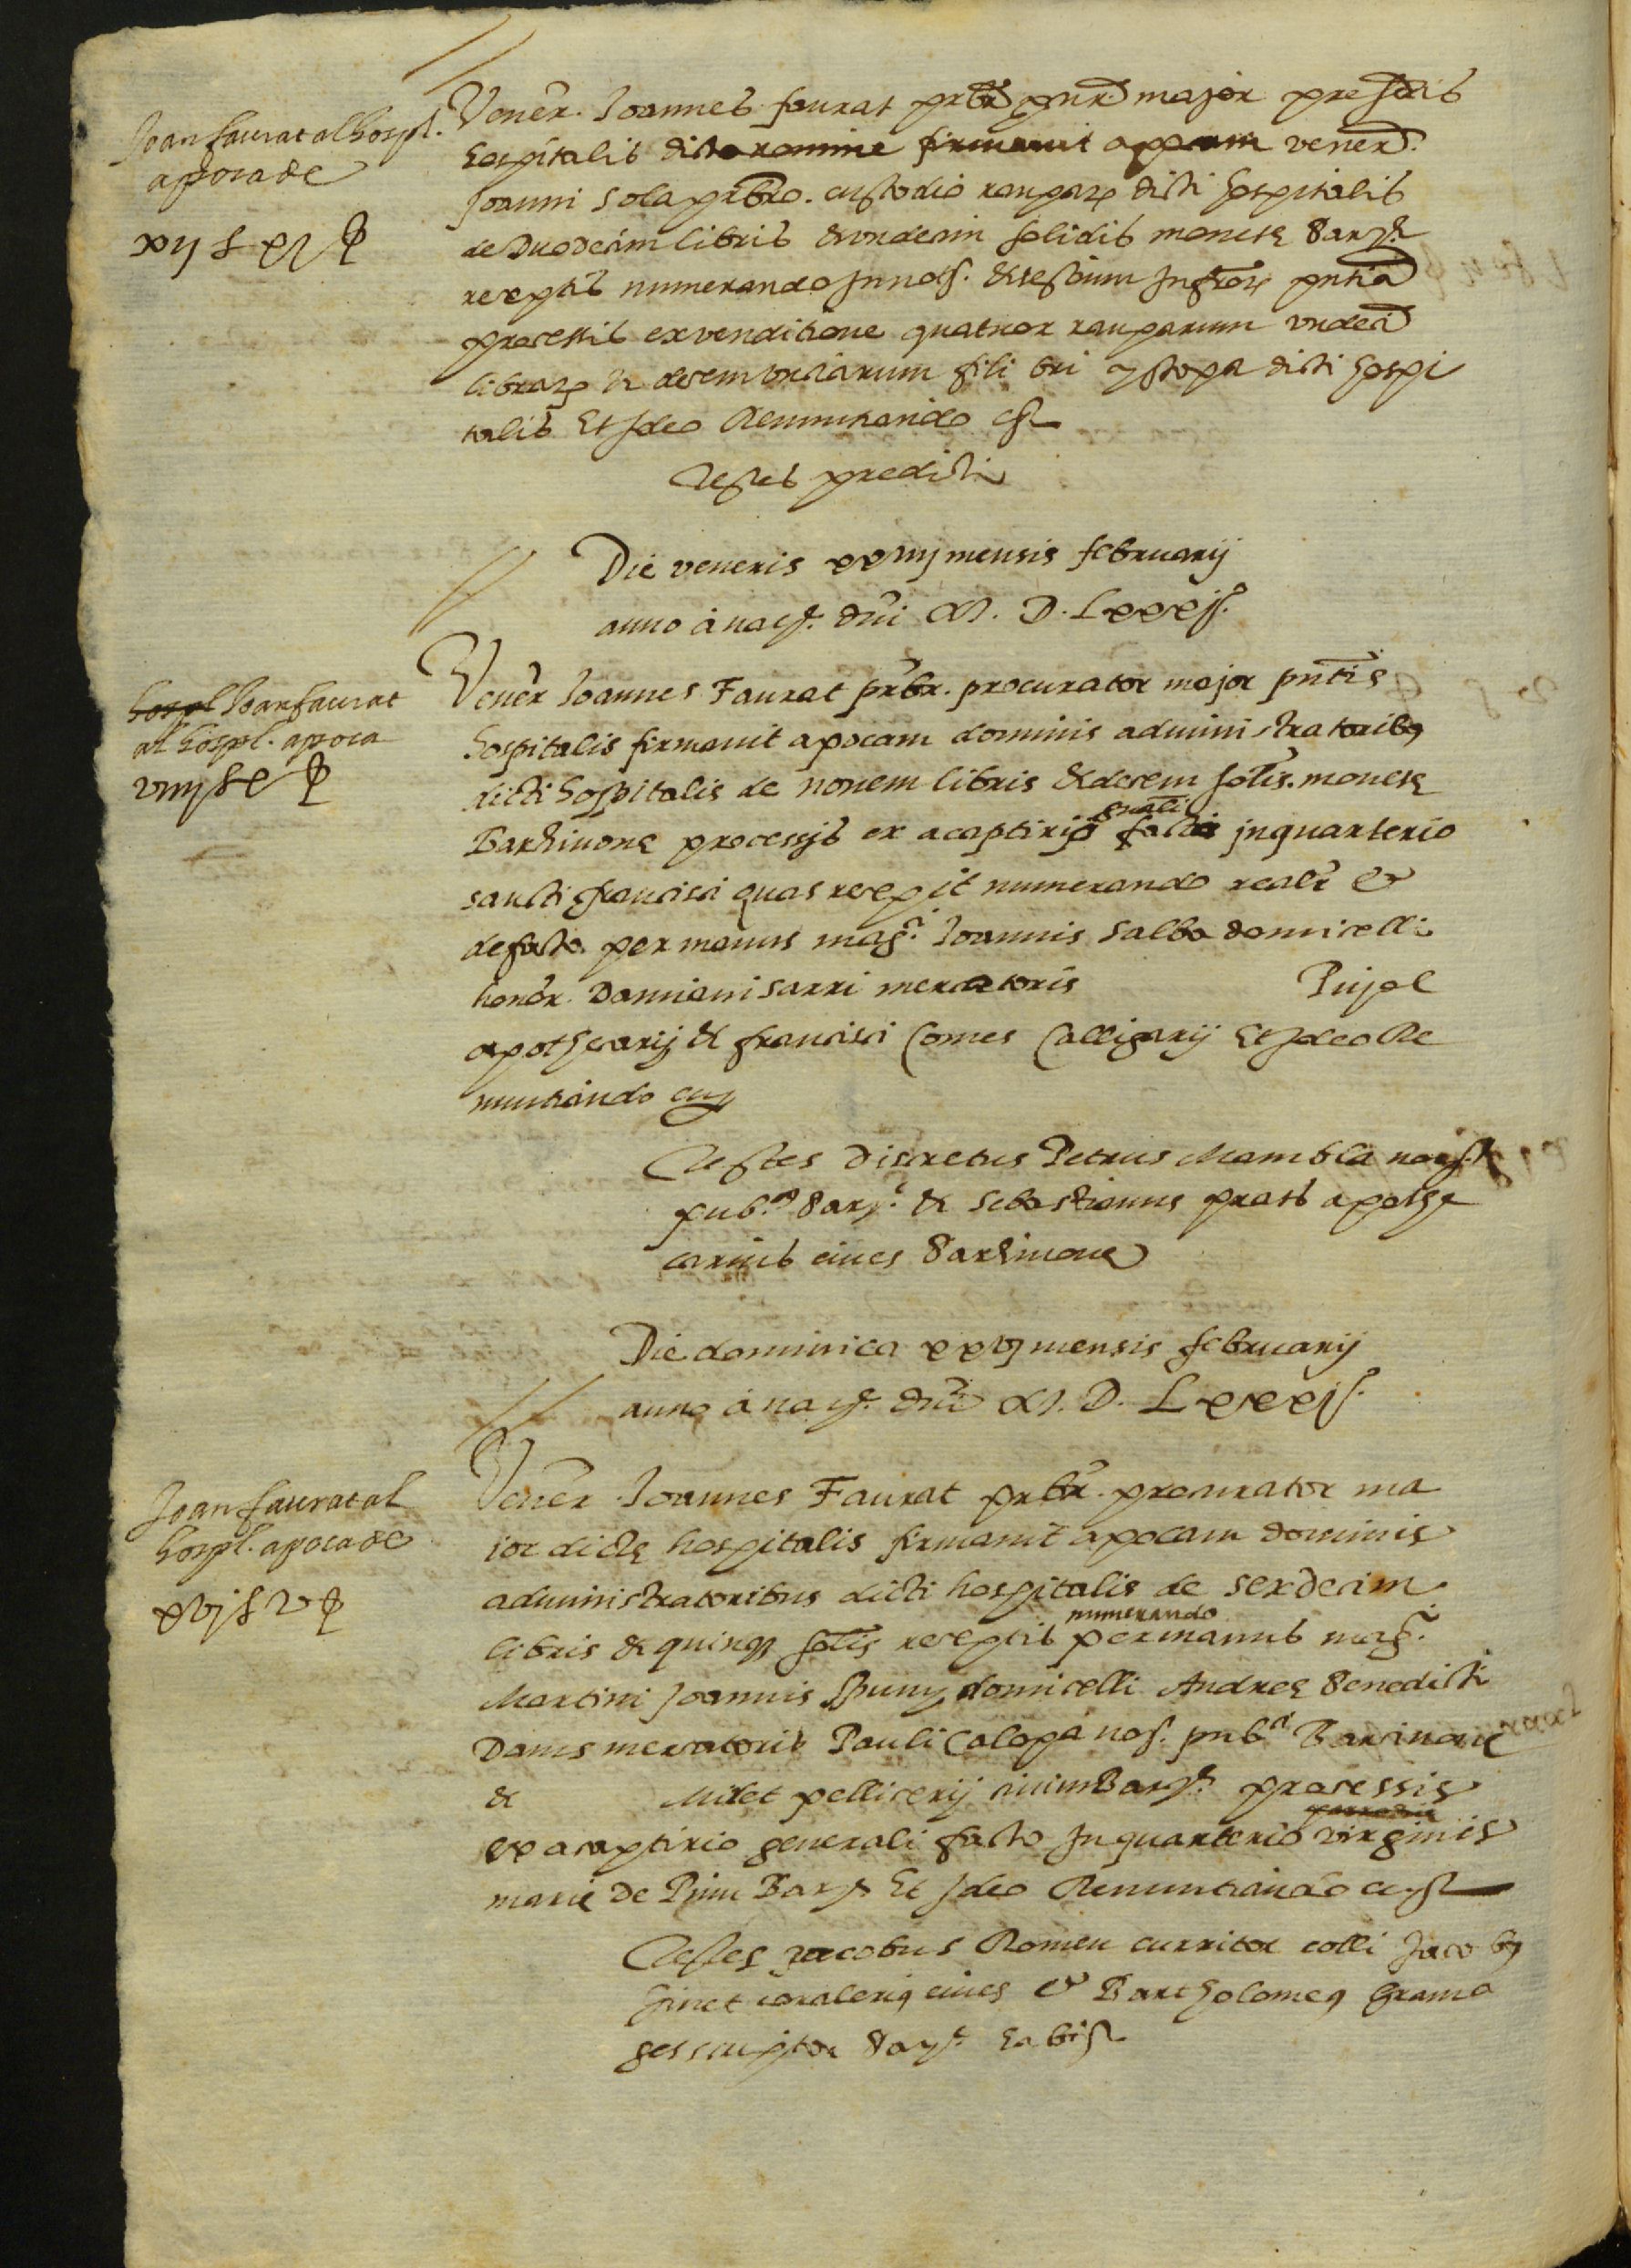 Joan faurat al hospl.
apoca de
xij ɫ xj ꝑ
Vener. Joannes faurat prbr procr. major presentis
hospitalis dicto nomine firmavit apocam vener.
Joanni sola prbro. custodio raupar dicti hospitalis
de duodecim libris & undecim solidis monete Barne
receptis numerando in not. & testium infror pntia
processis ex venditione quatuor rauparum undeci
librar & decem unciarum fili bri y stopa dicti hospi
talis Et ideo Renuntiando &
Testes predicti
Die veneris xxiiij mensis februarij
anno a nat. dni M. D. Lxxxj.
hospl Joan faurat
al hospl. apoca
viiij ɫ x ꝑ
Vener Joannes Faurat prbr. procurator major pntis
hospitalis firmavit apocam dominis administratoribus
dicti hospitalis de novem libris & decem solis. monete
Barchinone processis ex acaptirio gnali facto in quarterio
sancti francisci quas recepit numerando realr &
de facto per manus mag.ci Joannis Salba domicelli
honor. Damiani sarri mercatoris Pujol
apothecarij & francisci Comes Calligarij Et ideo Re
nuntiando cet
Testes discretus Petrus Mambla not.
pub.cus Barne. & Sebastianus prats apothe
carius cives Barchinone
Die dominica xxvj mensis februarij
anno a nat. dni M. D. Lxxxj.
Joan faurat al
hospl. apoca de
xvj ɫ v ꝑ
Vener. Joannes Faurat prbr. procurator ma
ior dicte hospitalis firmavit apocam dominis
administratoribus dicti hospitalis de sexdecim
libris & quinque solis receptis numerando per manus mag.ci
Martini Joannis domicelli Andree Benedicti
Dams mercatoris Pauli Calopa not. pub.ci Barcinone
& Milet pellicerij civium Barne. processis
ex acaptirio generali facto in quarterio virginis
marie de Pinu Barne Et ideo Renuntiando cet
Testes Jacobus Romeu curritor colli Jacobus
finet civis & Bartholomeus Grama
ges scriptor Barne. habit